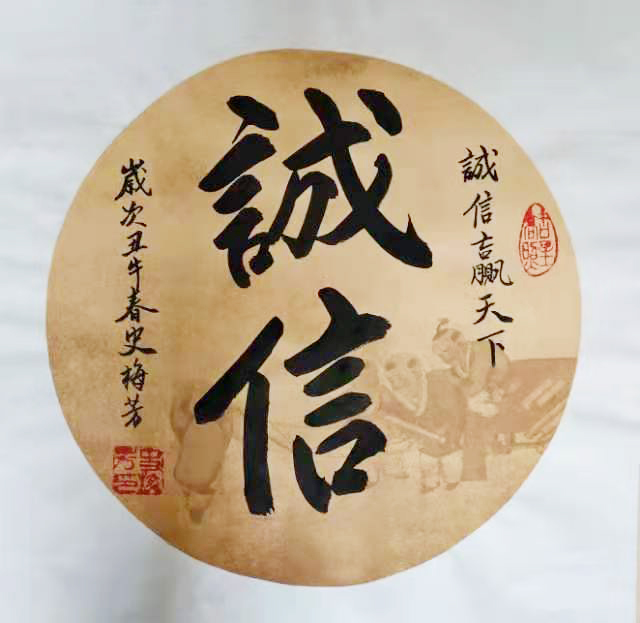 誠信贏天下
誠信
歲次丑牛春史梅芳